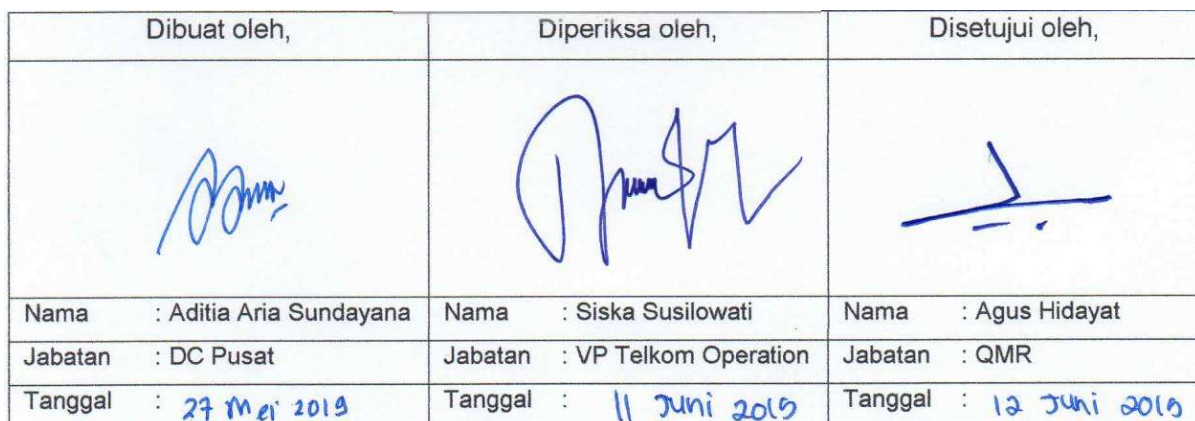 Dibuat oleh, Diperiksa oleh, Disetujui oleh,
Nama : Aditia Aria Sundayana Nama : Siska Susilowati Nama : Agus Hidayat
Jabatan : DC Pusat Jabatan : VP Telkom Operation Jabatan : QMR
Tanggal : 27 Mei 2019 Tanggal : 11 Juni 2019 Tanggal : 12 Juni 2019